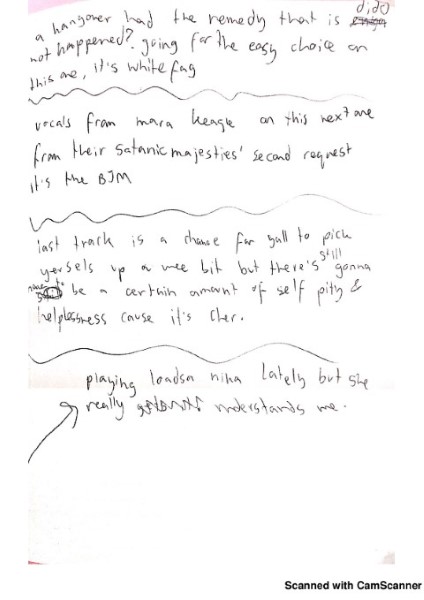 a hangover had the remedy that is dido
not happened? going for the easy choice on
this one, it's white flag
vocals from mara keagle on this next one
from their satanic majesties' second request
it's the BJM
last track is a chance for yall to pick
yersels up a wee bit but there's still gonna
be a certain amount of self pity &
helplessness cause it's Cher.
playing loadsa nina lately but she
really understands me.
Scanned with CamScanner